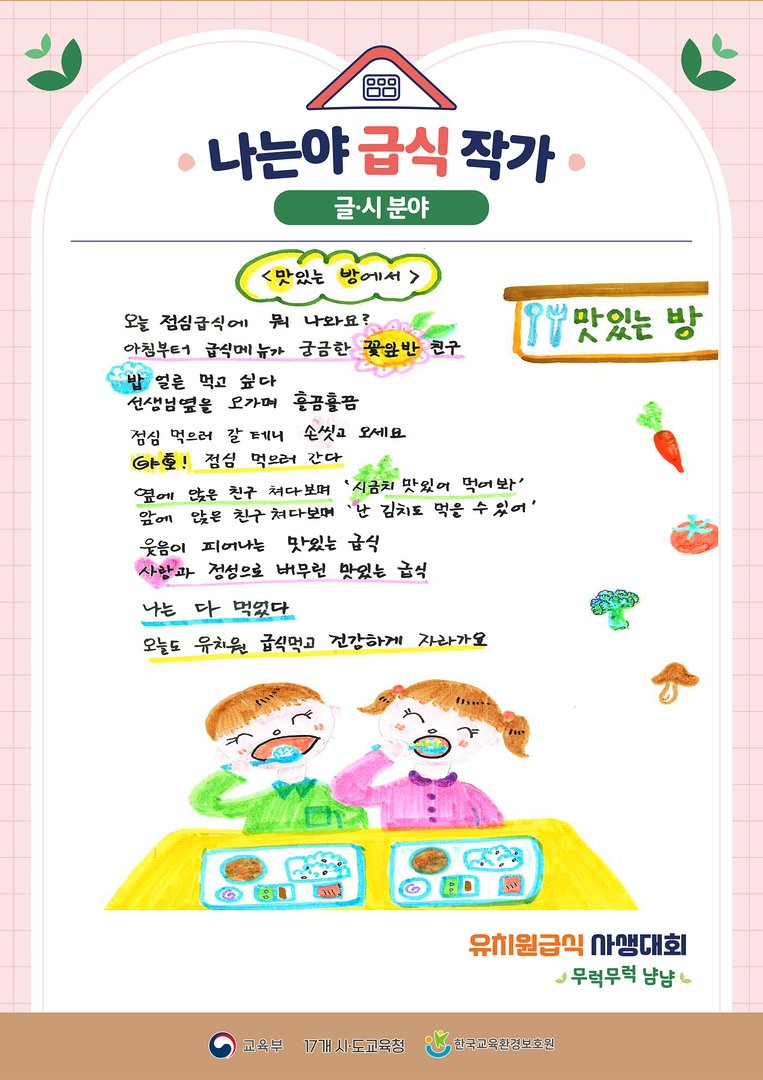 나는야 급식 작가
글·시 분야
<맛있는 방에서>
맛있는 방
오늘 점심급식에 뭐 나와요?
아침부터 급식메뉴가 궁금한 꽃잎반 친구
밥 얼른 먹고 싶다
선생님옆을 오가며 흘끔흘끔
점심 먹으러 갈 테니 손씻고 오세요
야호! 점심 먹으러 간다
옆에 앉은 친구 쳐다보며 '시금치 맛있어 먹어봐'
앞에 앉은 친구 쳐다보며 '난 김치도 먹을 수 있어'
웃음이 피어나는 맛있는 급식
사랑과 정성으로 버무린 맛있는 급식
나는 다 먹었다
오늘도 유치원 급식먹고 건강하게 자라가요
유치원급식 사생대회
무럭무럭 냠냠
교육부 17개 시·도교육청 한국교육환경보호원